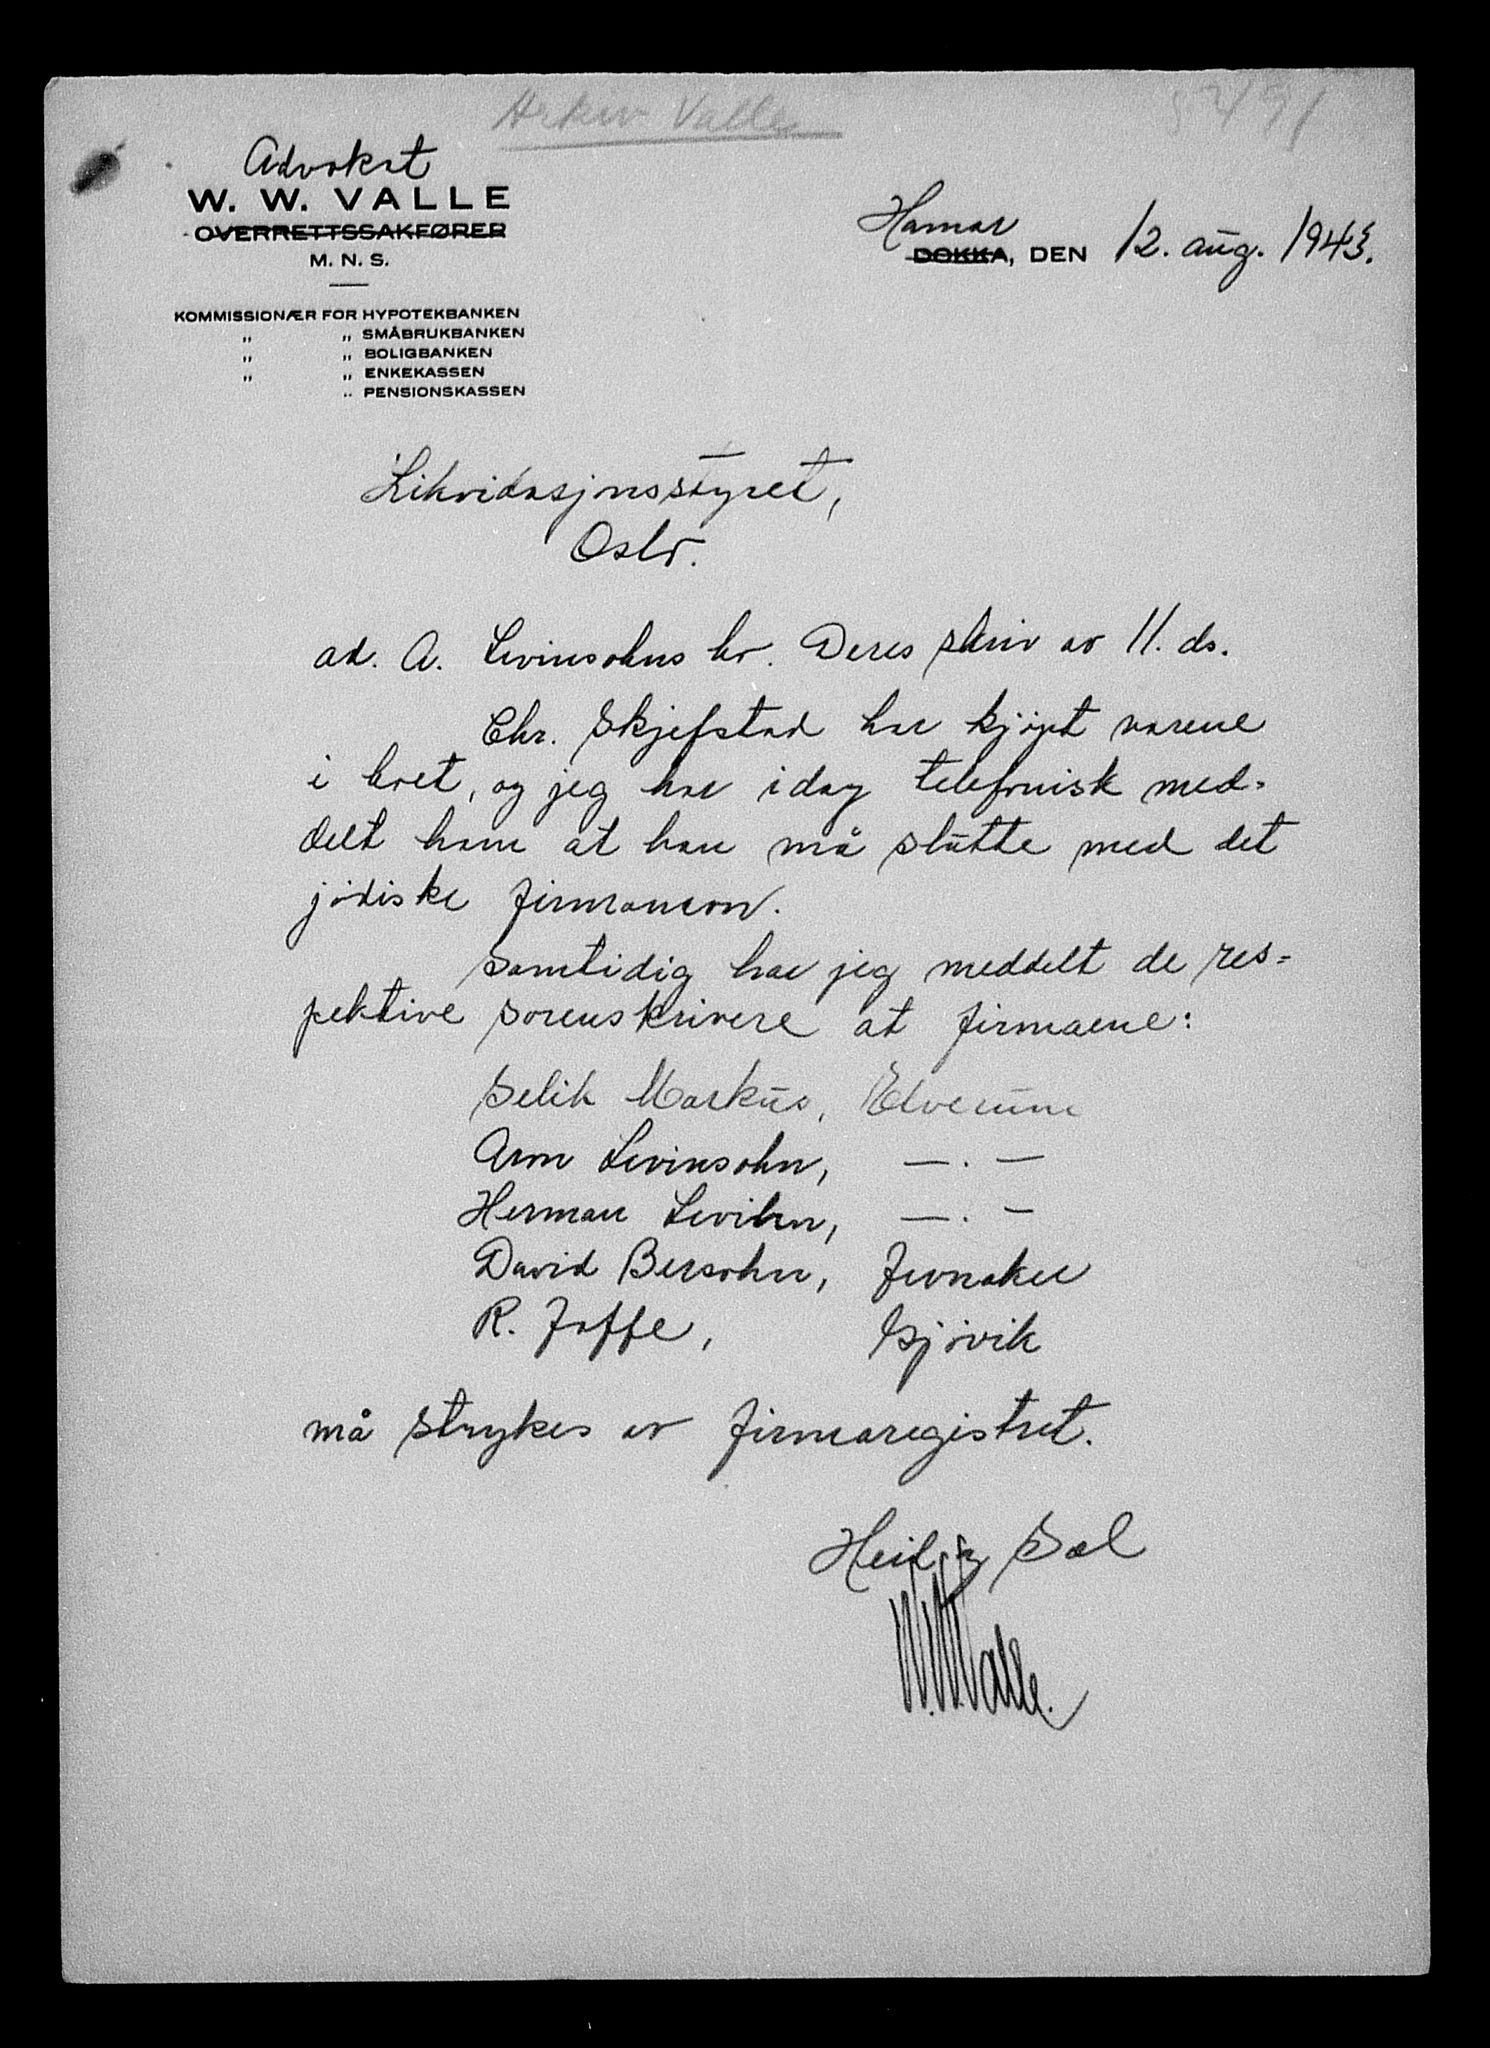 Arkiv Valle
Advokat
W. W. VALLE
OVERRETTSSAKFØRER
M. N. S.
Hamar
DOKKA, DEN 12. aug. 1943.
KOMMISSIONÆR FOR HYPOTEKBANKEN
„ „ SMÅBRUKBANKEN
„ „ BOLIGBANKEN
„ „ ENKEKASSEN
„ PENSIONSKASSEN
Likvidasjonsstyret,
Oslo.
ad. A. Levinsohns bo. Deres skriv av 11. ds.
Chr. Skjefstad har kjöpt varene
i boet, og jeg har idag telefonisk med-
delt ham at han må slutte med det
jödiske firmanavn.
Samtidig har jeg meddelt de res-
pektive sorenskrivere at firmaene:
Selik Markus, Elverum
Aron Levinsohn, — . —
Herman Levihn, — . —
David Bersohn, Jevnaker
R. Jaffe, Gjövik
må strykes av firmaregistret.
Heil og Sæl
W. W. Valle.